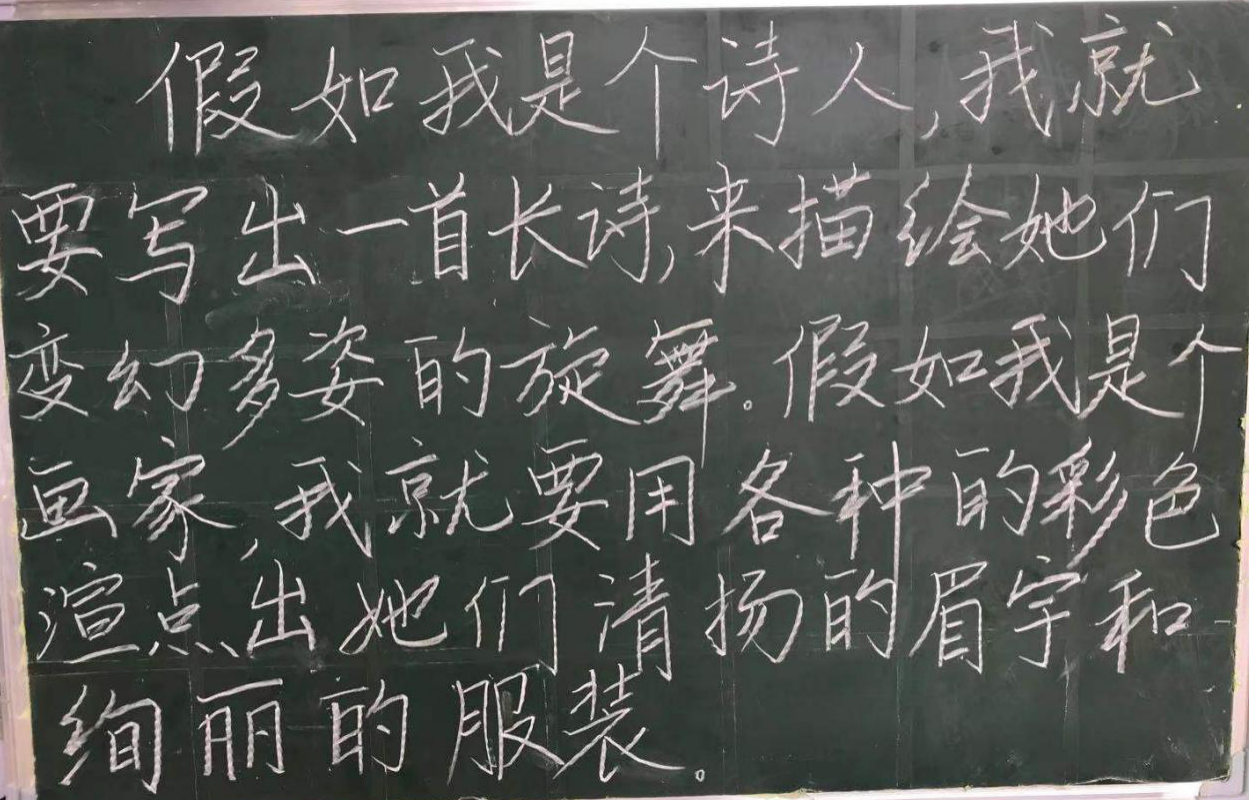 假如我是个诗人,我就
要写出一首长诗,来描绘她们
变幻多姿的旋舞。假如我是个
画家,我就要用各种的彩色
渲点出她们清扬的眉宇和
绚丽的服装。